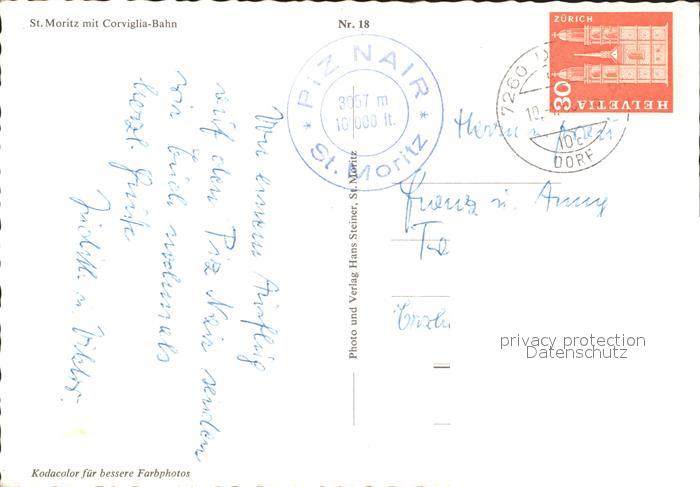 St. Moritz mit Corviglia-Bahn
Nr. 18
PIZ NAIR
3057 m
10'000 ft.
St. Moritz
ZÜRICH
30
HELVETIA
7260 D
10.
10c
DORF
Von einem Ausflug
auf den Piz Nair senden
wir Euch nochmals
herzl. Grüsse
Judith u. Viktor.
Herrn u. Frau
Franz u. Anny
Photo und Verlag Hans Steiner, St. Moritz
privacy protection
Datenschutz
Kodacolor für bessere Farbphotos